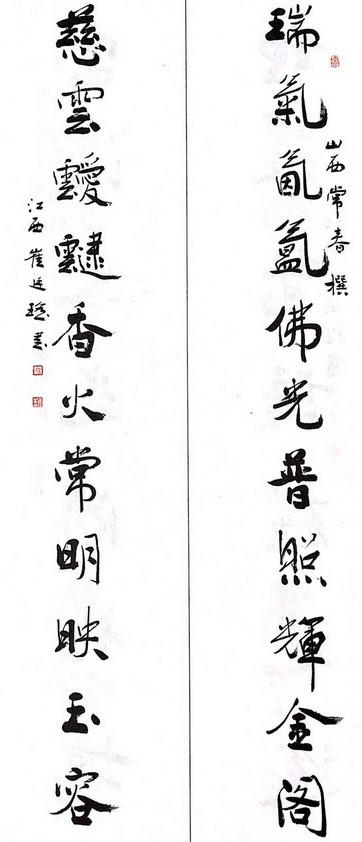 瑞氣氤氳佛光普照輝金阁
山西常春撰
慈雲靉靆香火常明映玉容
江西崔廷瑤书